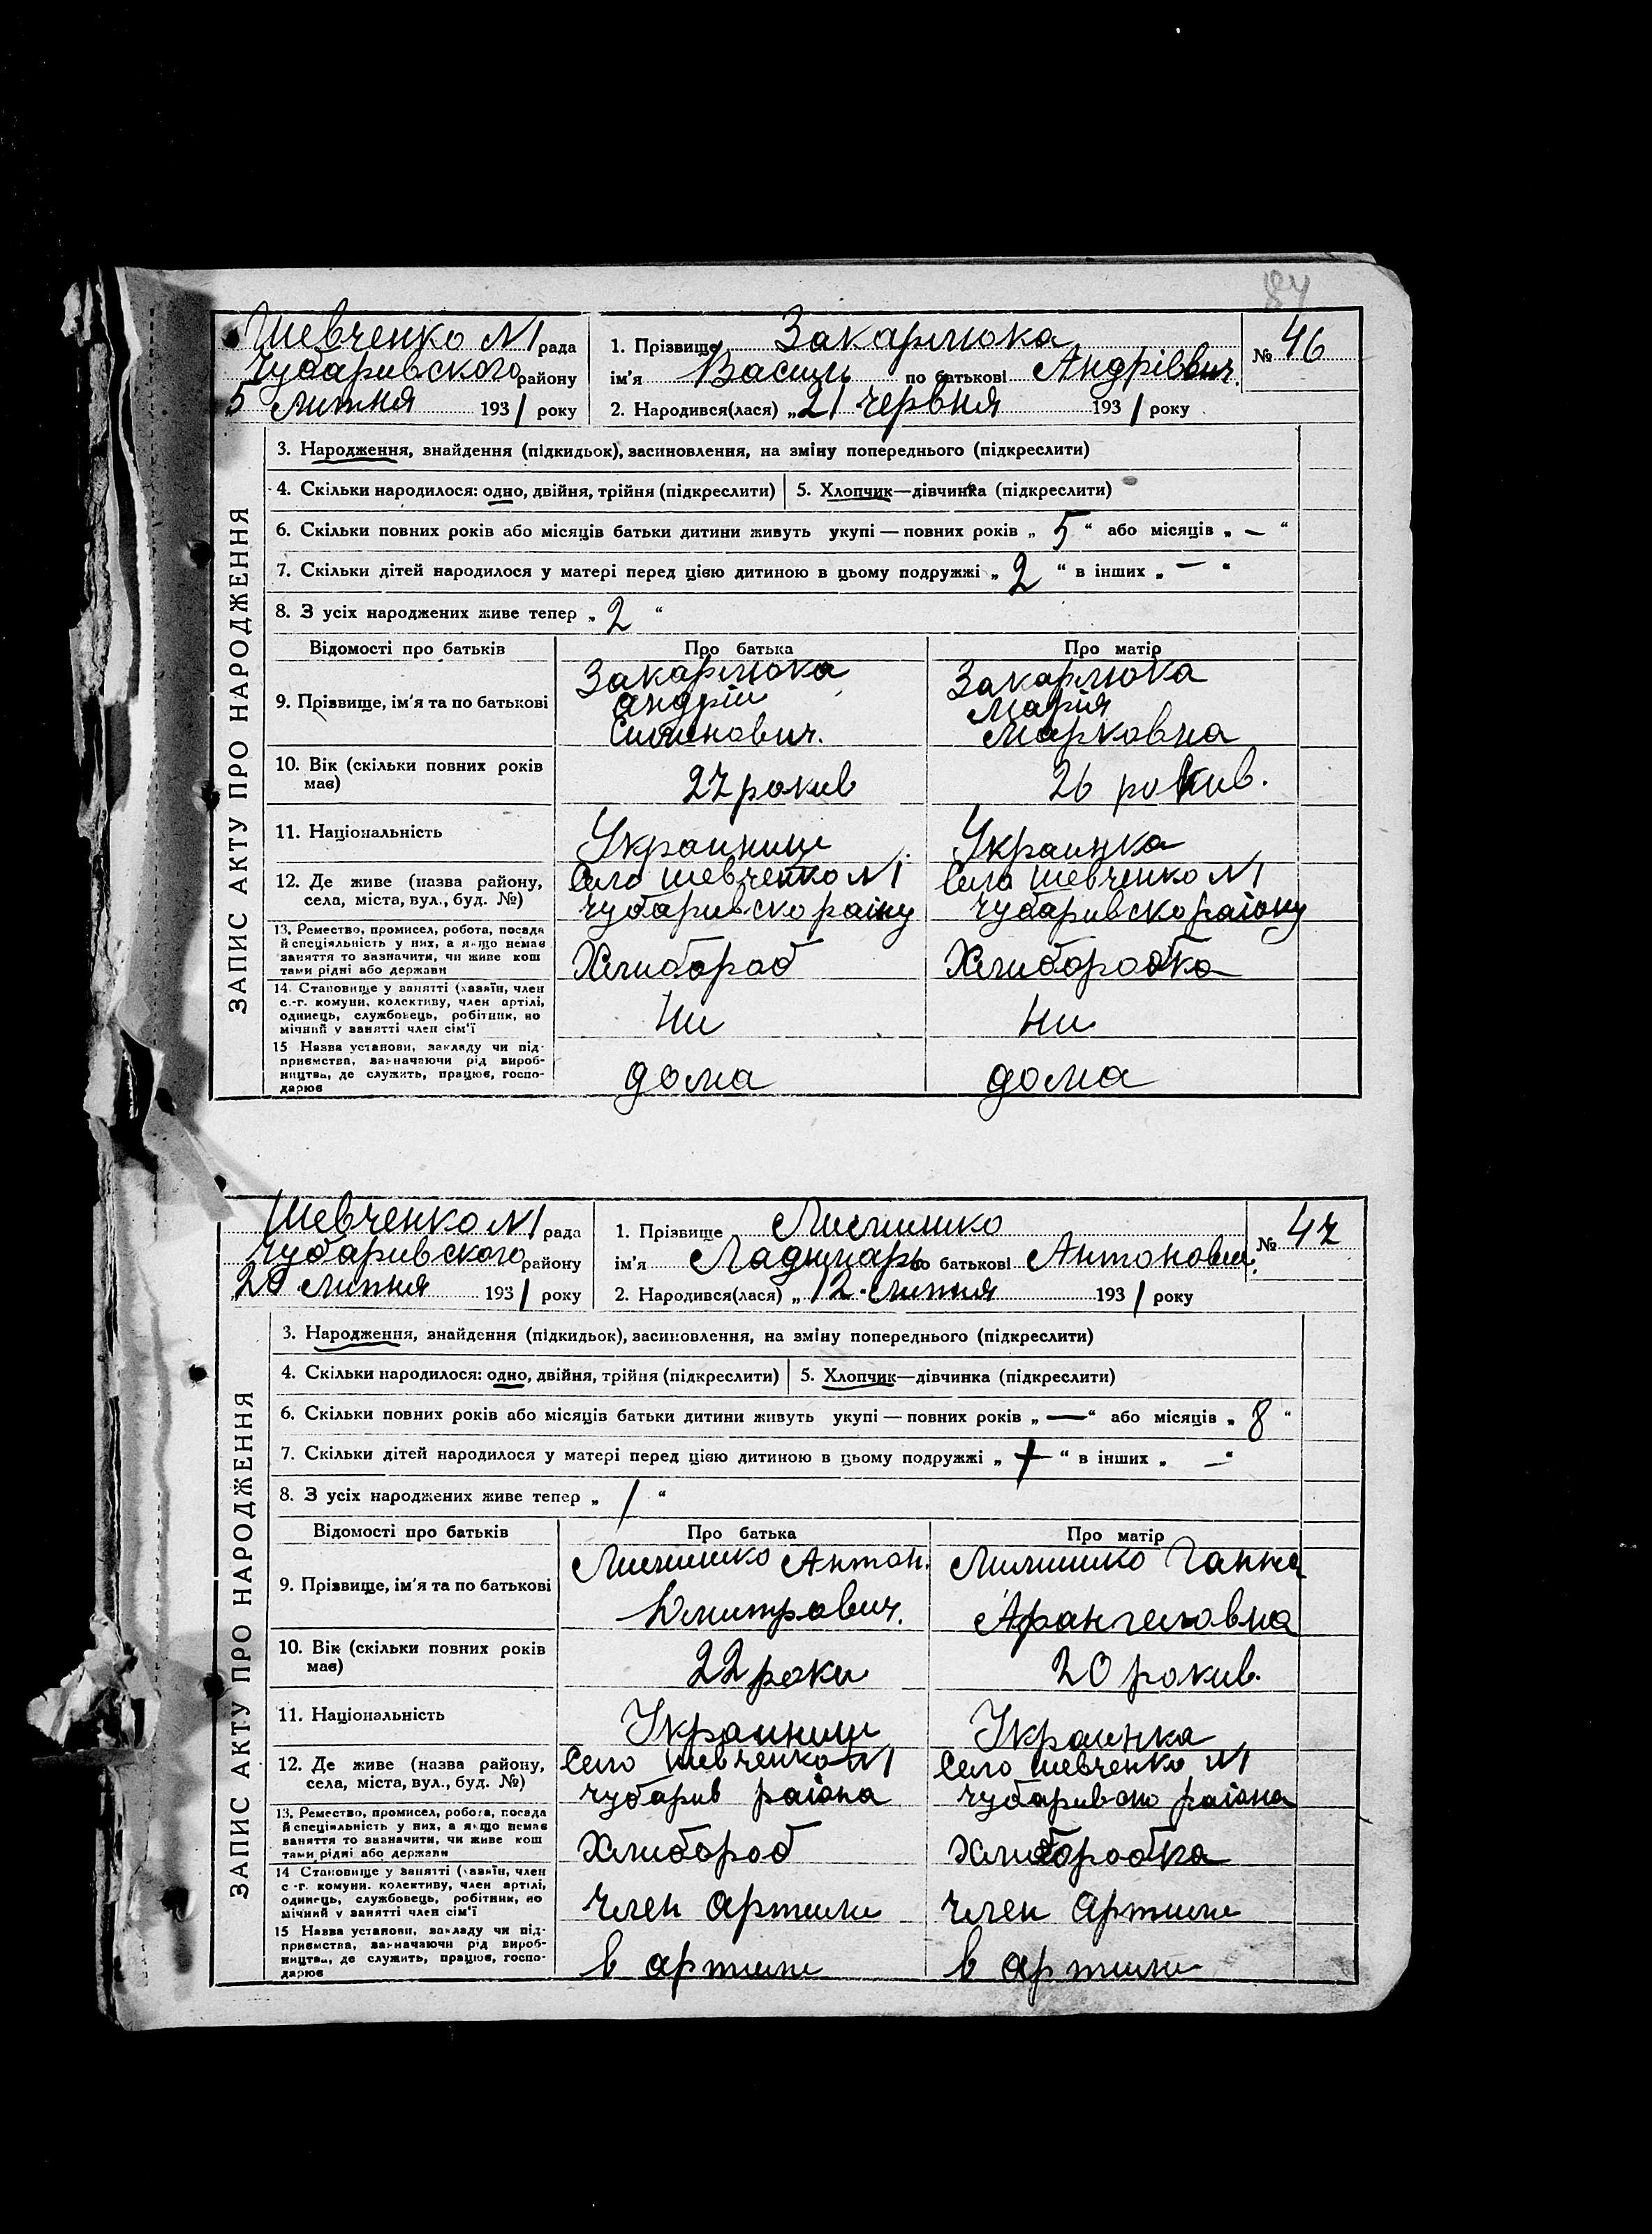 84
Шевченко №1 рада
Чубаривского району
5 липня 1931 року
1. Прізвище Закарлюка
ім'я Василь по батькові Андрієвич.
2. Народився(лася) „21 червня 1931 року
№ 46
ЗАПИС АКТУ ПРО НАРОДЖЕННЯ
3. Народження, знайдення (підкидьок), засиновлення, на зміну попереднього (підкреслити)
4. Скільки народилося: одно, двійня, трійня (підкреслити) 5. Хлопчик—дівчинка (підкреслити)
6. Скільки повних років або місяців батьки дитини живуть укупі — повних років „ 5 “ або місяців „ – “
7. Скільки дітей народилося у матері перед цією дитиною в цьому подружжі „ 2 “ в інших „ – “
8. З усіх народжених живе тепер „ 2 “
Відомості про батьків Про батька Про матір
9. Прізвище, ім'я та по батькові
Закарлюка
Андрій
Закарлюка
Мария
Марковна
10. Вік (скільки повних років
має)
27 рокив
26 рокив.
11. Національність
Украинищ
Украинка
12. Де живе (назва району,
села, міста, вул., буд. №)
Село Шевченко №1
Чубаривско раіну
Село Шевченко №1
Чубаривско раіону
13. Ремество, промисел, робота, посада
й спеціяльність у них, а якщо немає
заняття то зазначити, чи живе кош
тами рідні або держави
Хлибороб
Хлиборобка
14. Становище у занятті (хазяїн, член
с.-г. комуни, колективу, член артілі,
одинець, службовець, робітник, по
мічний у занятті член сім'ї
Ни
Ни
15 Назва установи, закладу чи під-
приємства, зазначаючи рід вироб-
ництва, де служить, працює, госпо-
дарює
дома
дома
Шевченко №1 рада
Чубаривского району
20 липня 1931 року
1. Прізвище Лисишко
ім'я Ладимарь по батькові Антонович.
2. Народився(лася) „12. липня 1931 року
№ 47
ЗАПИС АКТУ ПРО НАРОДЖЕННЯ
3. Народження, знайдення (підкидьок), засиновлення, на зміну попереднього (підкреслити)
4. Скільки народилося: одно, двійня, трійня (підкреслити) 5. Хлопчик—дівчинка (підкреслити)
6. Скільки повних років або місяців батьки дитини живуть укупі — повних років „ — “ або місяців „ 8 “
7. Скільки дітей народилося у матері перед цією дитиною в цьому подружжі „ “ в інших „ – “
8. З усіх народжених живе тепер „ 1 “
Відомості про батьків Про батька Про матір
9. Прізвище, ім'я та по батькові
Антон.
Юмитрович.
Ганна
Арангеловна
10. Вік (скільки повних років
має)
22 роки
20 рокив.
11. Національність
Украинищ
Украинка
12. Де живе (назва району,
села, міста, вул., буд. №)
Село Шевченко №1
Чубарив раіона
Село Шевченко №1
Чубаривско раіона
13. Ремество, промисел, робота, посада
й спеціяльність у них, а якщо немає
заняття то зазначити, чи живе кош
тами рідні або держави
Хлибороб
Хлиборобка
14 Становище у занятті (хазяїн, член
с.-г. комуни. колективу, член артілі,
одинець, службовець, робітник, по
мічний у занятті член сім'ї
Член Артили
Член Артили
15 Назва установи, закладу чи під-
приємства, зазначаючи рід вироб-
ництва, де служить, працює, госпо-
дарює
в артили
в артили